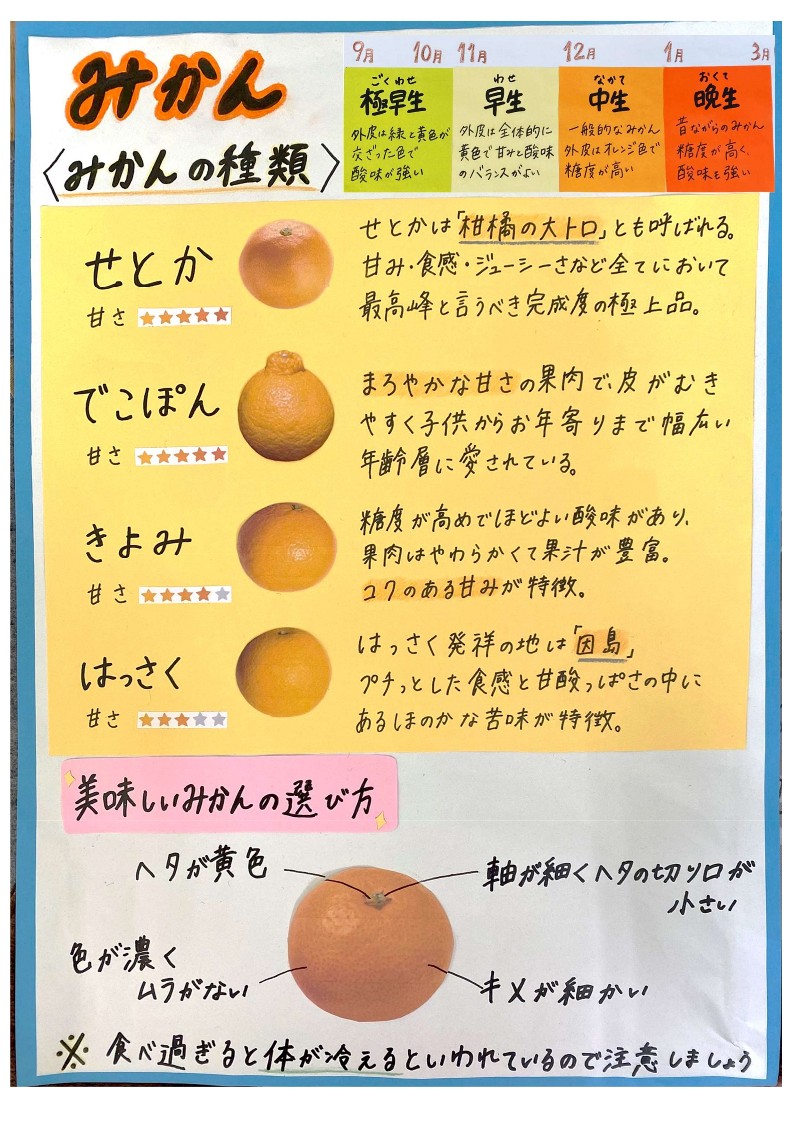 みかん
〈みかんの種類〉
9月 10月 11月 12月 1月 3月
ごくわせ
極早生
外皮は緑と黄色が
交ざった色で
酸味が強い
わせ
早生
外皮は全体的に
黄色で甘みと酸味
のバランスがよい
なかて
中生
一般的なみかん
外皮はオレンジ色で
糖度が高い
おくて
晩生
昔ながらのみかん
糖度が高く、
酸味も強い
せとか
甘さ ★★★★★
せとかは「柑橘の大トロ」とも呼ばれる。
甘み・食感・ジューシーさなど全てにおいて
最高峰と言うべき完成度の極上品。
でこぽん
甘さ ★★★★★
まろやかな甘さの果肉で、皮がむき
やすく子供からお年寄りまで幅広い
年齢層に愛されている。
きよみ
甘さ ★★★★★
糖度が高めでほどよい酸味があり、
果肉はやわらかくて果汁が豊富。
コクのある甘みが特徴。
はっさく
甘さ ★★★★★
はっさく発祥の地は「因島」
プチっとした食感と甘酸っぱさの中に
あるほのかな苦味が特徴。
美味しいみかんの選び方
ヘタが黄色
軸が細くヘタの切り口が
小さい
色が濃く
ムラがない
キメが細かい
※ 食べ過ぎると体が冷えるといわれているので注意しましょう